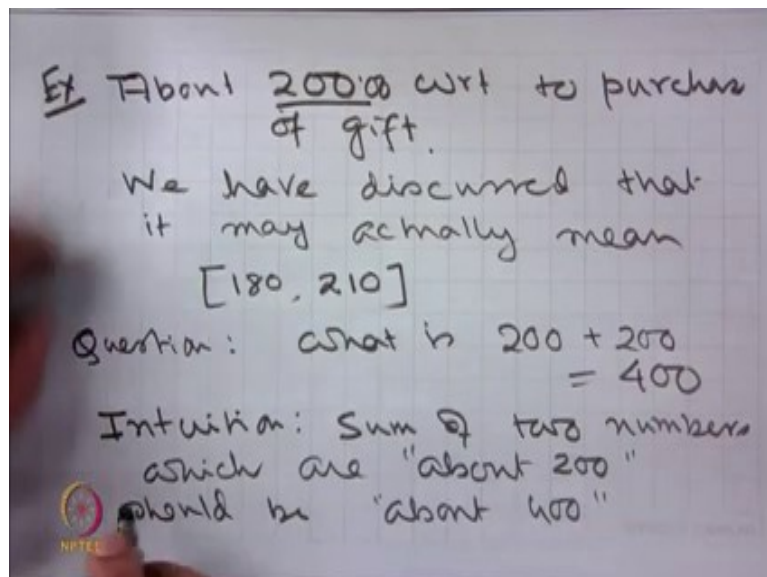 Ex About 200.00 wrt to purchase
of gift.
We have discussed that
it may actually mean
[180, 210]
Question: What is 200 + 200
= 400
Intuition: Sum of two numbers
which are "about 200"
should be "about 400"
NPTEL